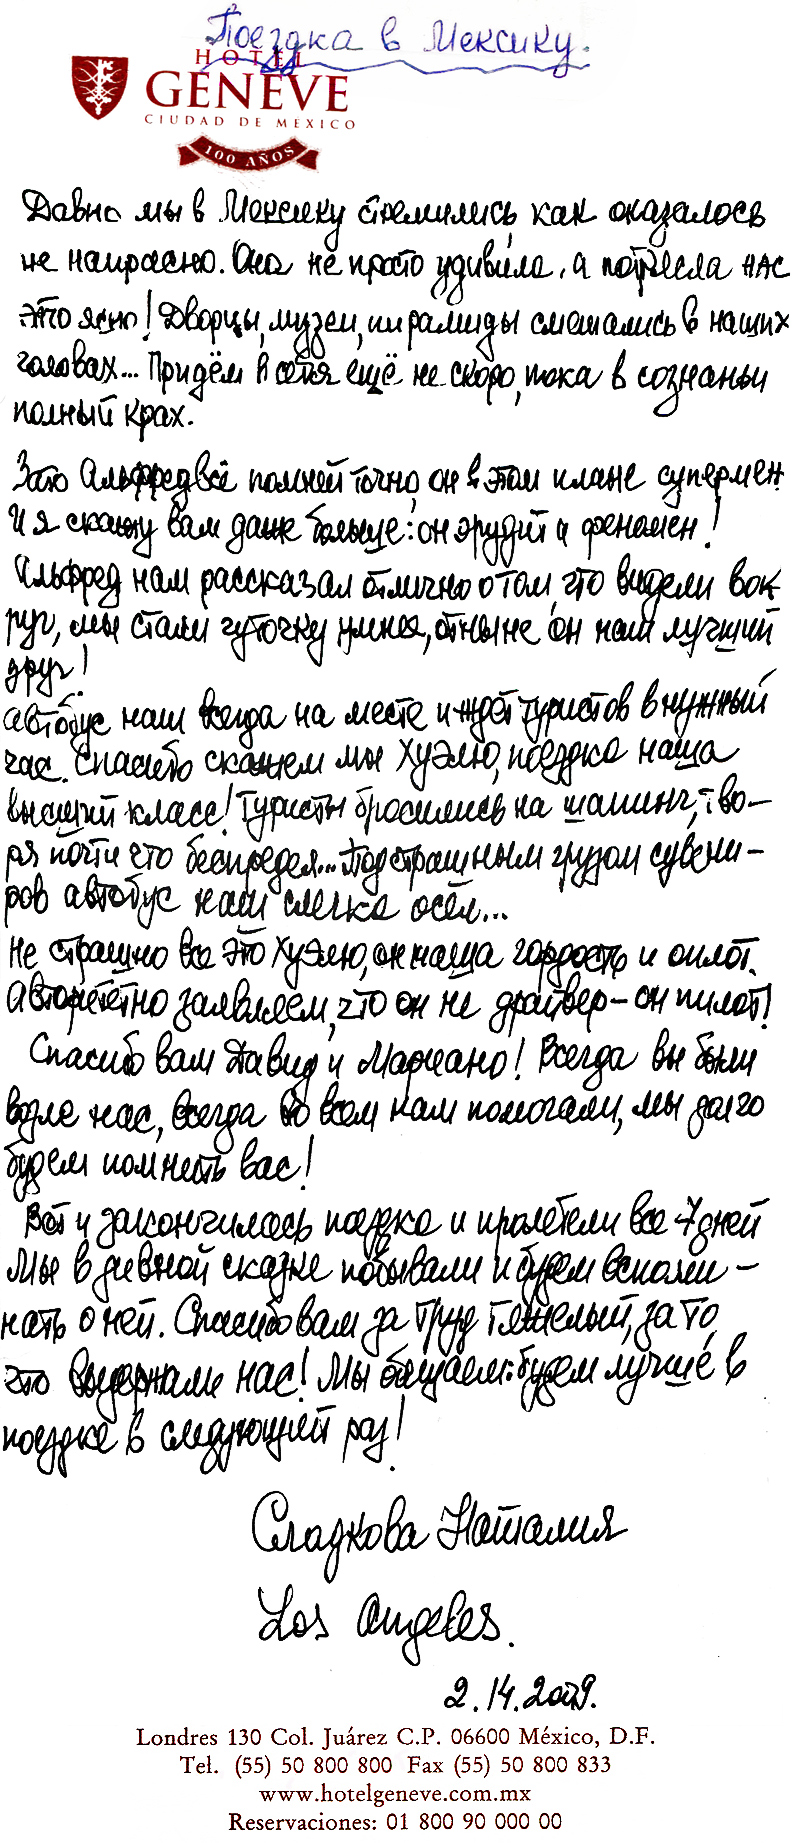 Поездка в Мексику.
HOTEL
GENEVE
CIUDAD DE MEXICO
100 AÑOS
Давно мы в Мексику стремились, как оказалось
не напрасно. Она не просто удивила, а потрясла нас
это ясно! Дворцы, музеи, пирамиды смешались в наших
головах... Придём в себя ещё не скоро, пока в сознаньи
полный крах.
Зато Альфред всё помнит точно, он в этом плане супермен.
И я скажу вам даже больше: он эрудит и феномен!
Альфред нам рассказал отлично о том что видели вок
руг, мы стали чуточку умнее, отныне он наш лучший
друг!
Автобус наш всегда на месте и ждёт туристов в нужный
час. Спасибо скажем мы Хуэлю, поездка наша
высший класс! Туристы бросились на шопинг, тво-
ря почти что беспредел... Под страшным грузом сувени-
ров автобус наш слегка осел...
Не страшно все это Хуэлю, он наша гордость и оплот.
Авторитетно заявляем, что он не драйвер - он пилот!
Спасибо вам Давид и Мариано! Всегда вы были
возле нас, всегда во всем нам помогали, мы долго
будем помнить вас!
Вот и закончилась поездка и пролетели все 7 дней
Мы в дивной сказке побывали и будем вспоми-
нать о ней. Спасибо вам за труд тяжелый, за то,
что выдержали нас! Мы обещаем: будем лучше в
поездке в следующий раз!
Сладкова Наталия
Los Angeles.
2.14.2009.
Londres 130 Col. Juárez C.P. 06600 México, D.F.
Tel. (55) 50 800 800 Fax (55) 50 800 833
www.hotelgeneve.com.mx
Reservaciones: 01 800 90 000 00